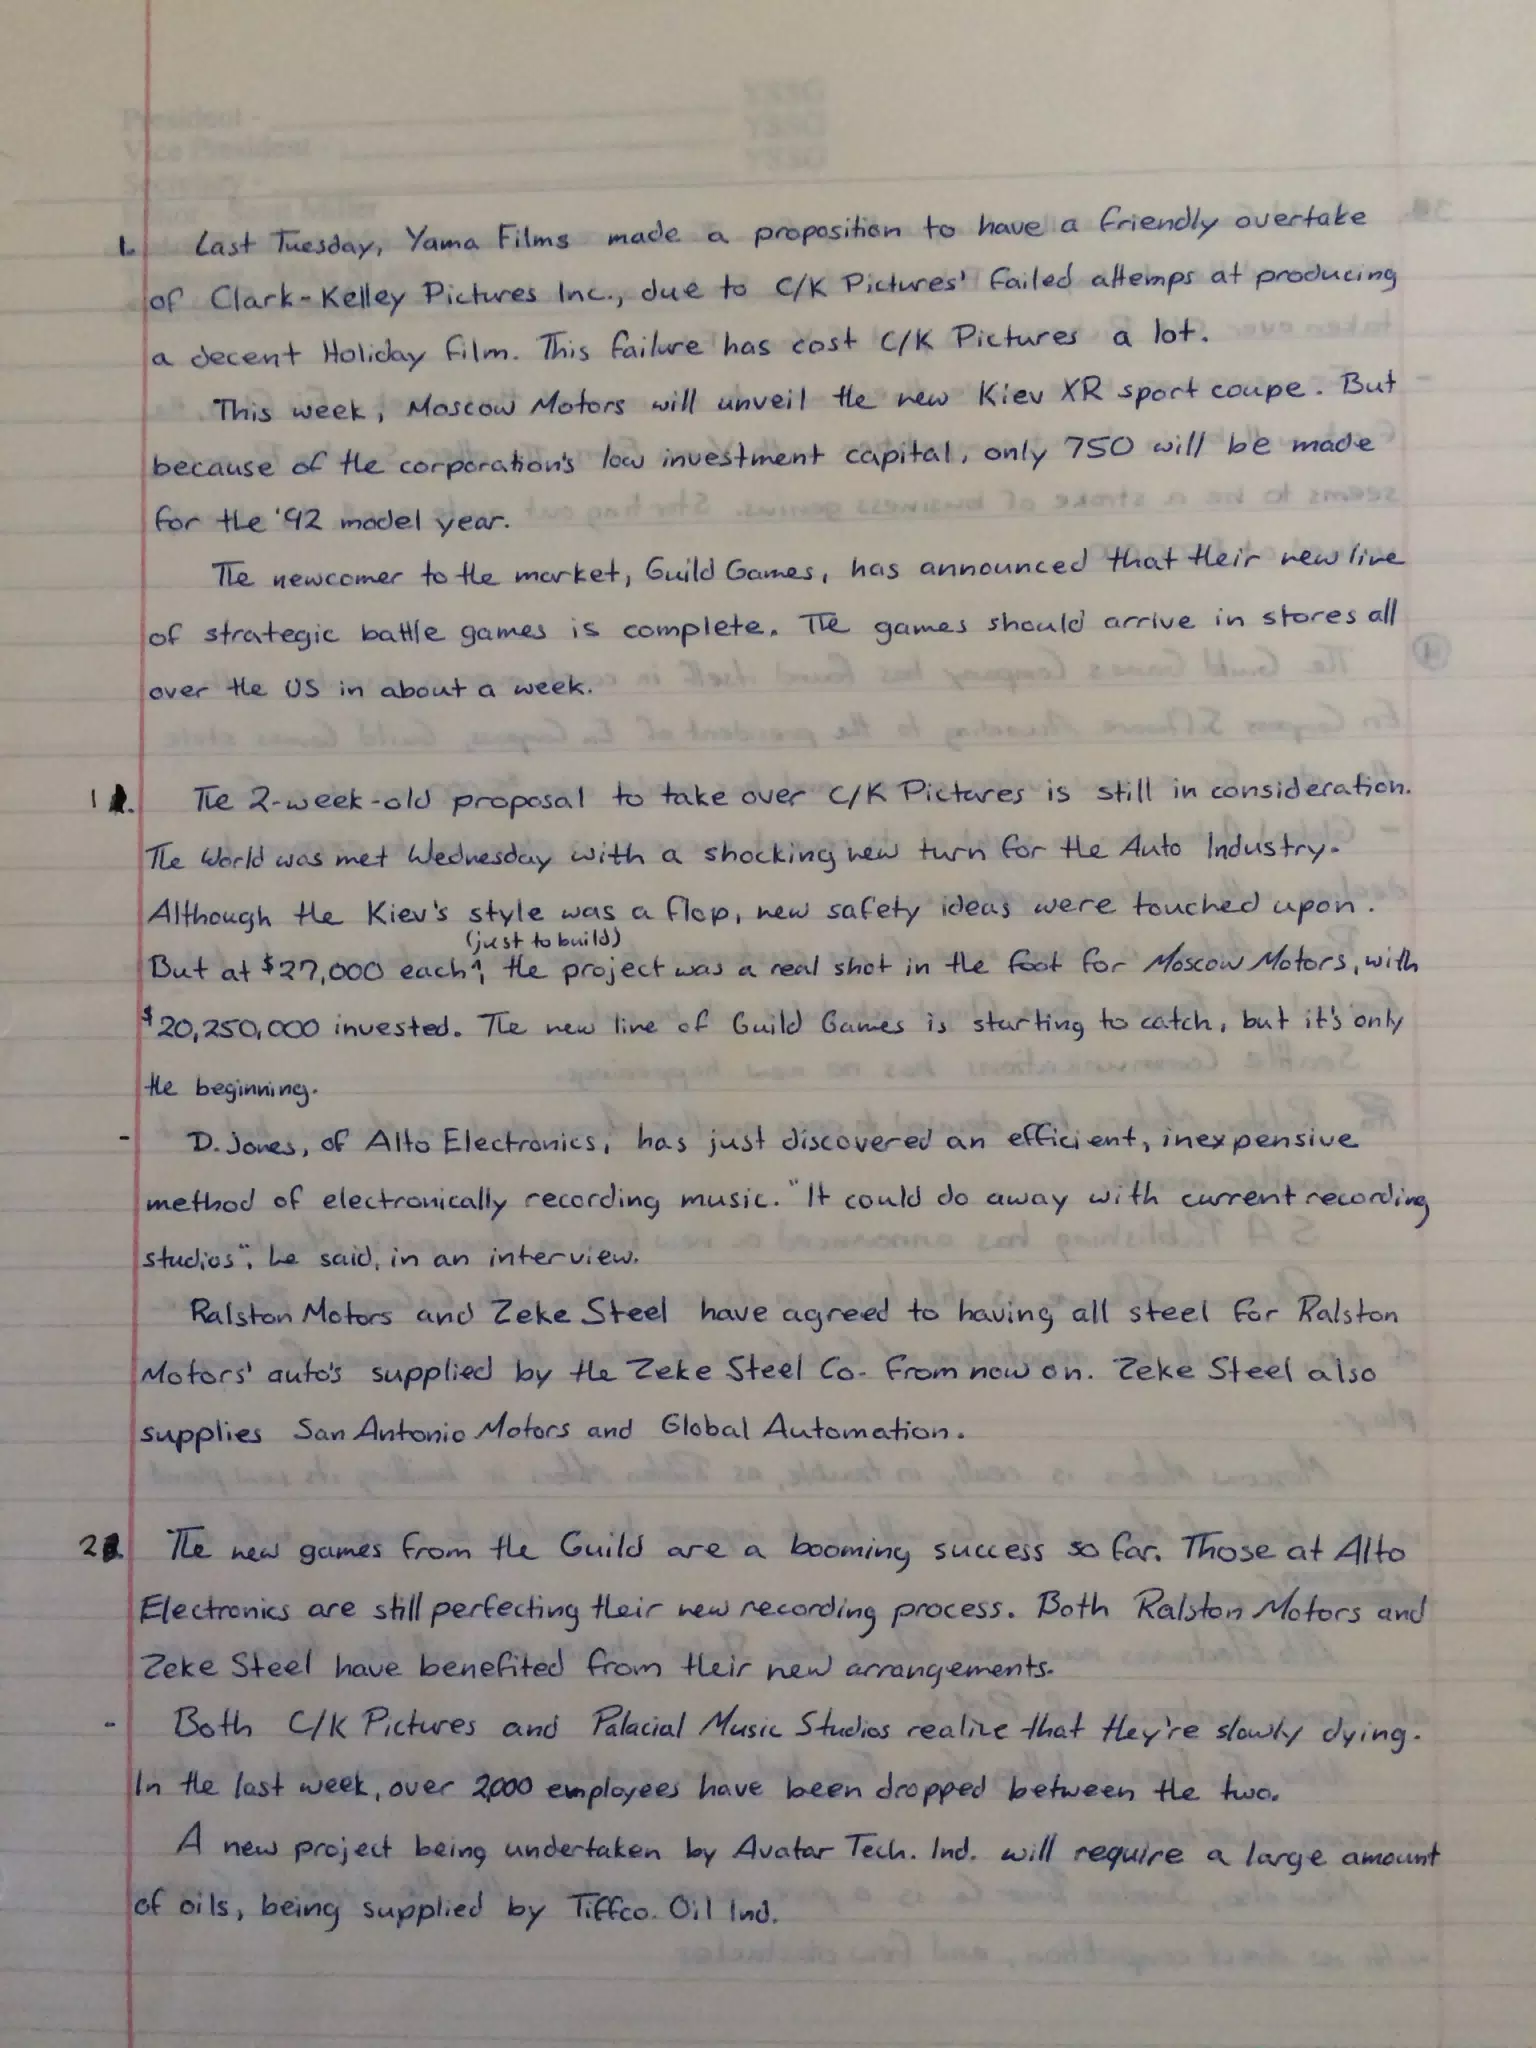 1. Last Tuesday, Yama Films made a proposition to have a friendly overtake
of Clark-Kelley Pictures Inc., due to C/K Pictures' failed attemps at producing
a decent Holiday film. This failure has cost C/K Pictures a lot.
This week, Moscow Motors will unveil the new Kiev XR sport coupe. But
because of the corporation's low investment capital, only 750 will be made
for the '92 model year.
The newcomer to the market, Guild Games, has announced that their new line
of strategic battle games is complete. The games should arrive in stores all
over the US in about a week.
1 The 2-week-old proposal to take over C/K Pictures is still in consideration.
The World was met Wednesday with a shocking new turn for the Auto Industry.
Although the Kiev's style was a flop, new safety ideas were touched upon.
(just to build)
But at $27,000 each^, the project was a real shot in the foot for Moscow Motors, with
$20,250,000 invested. The new line of Guild Games is starting to catch, but it's only
the beginning.
- D. Jones, of Alto Electronics, has just discovered an efficient, inexpensive
method of electronically recording music. "It could do away with current recording
studios", he said, in an interview.
Ralston Motors and Zeke Steel have agreed to having all steel for Ralston
Motors' auto's supplied by the Zeke Steel Co. from now on. Zeke Steel also
supplies San Antonio Motors and Global Automation.
2 The new games from the Guild are a booming success so far. Those at Alto
Electronics are still perfecting their new recording process. Both Ralston Motors and
Zeke Steel have benefited from their new arrangements.
- Both C/K Pictures and Palacial Music Studios realize that they're slowly dying.
In the last week, over 2,000 employees have been dropped between the two.
A new project being undertaken by Avatar Tech. Ind. will require a large amount
of oils, being supplied by Tiffco. Oil Ind.